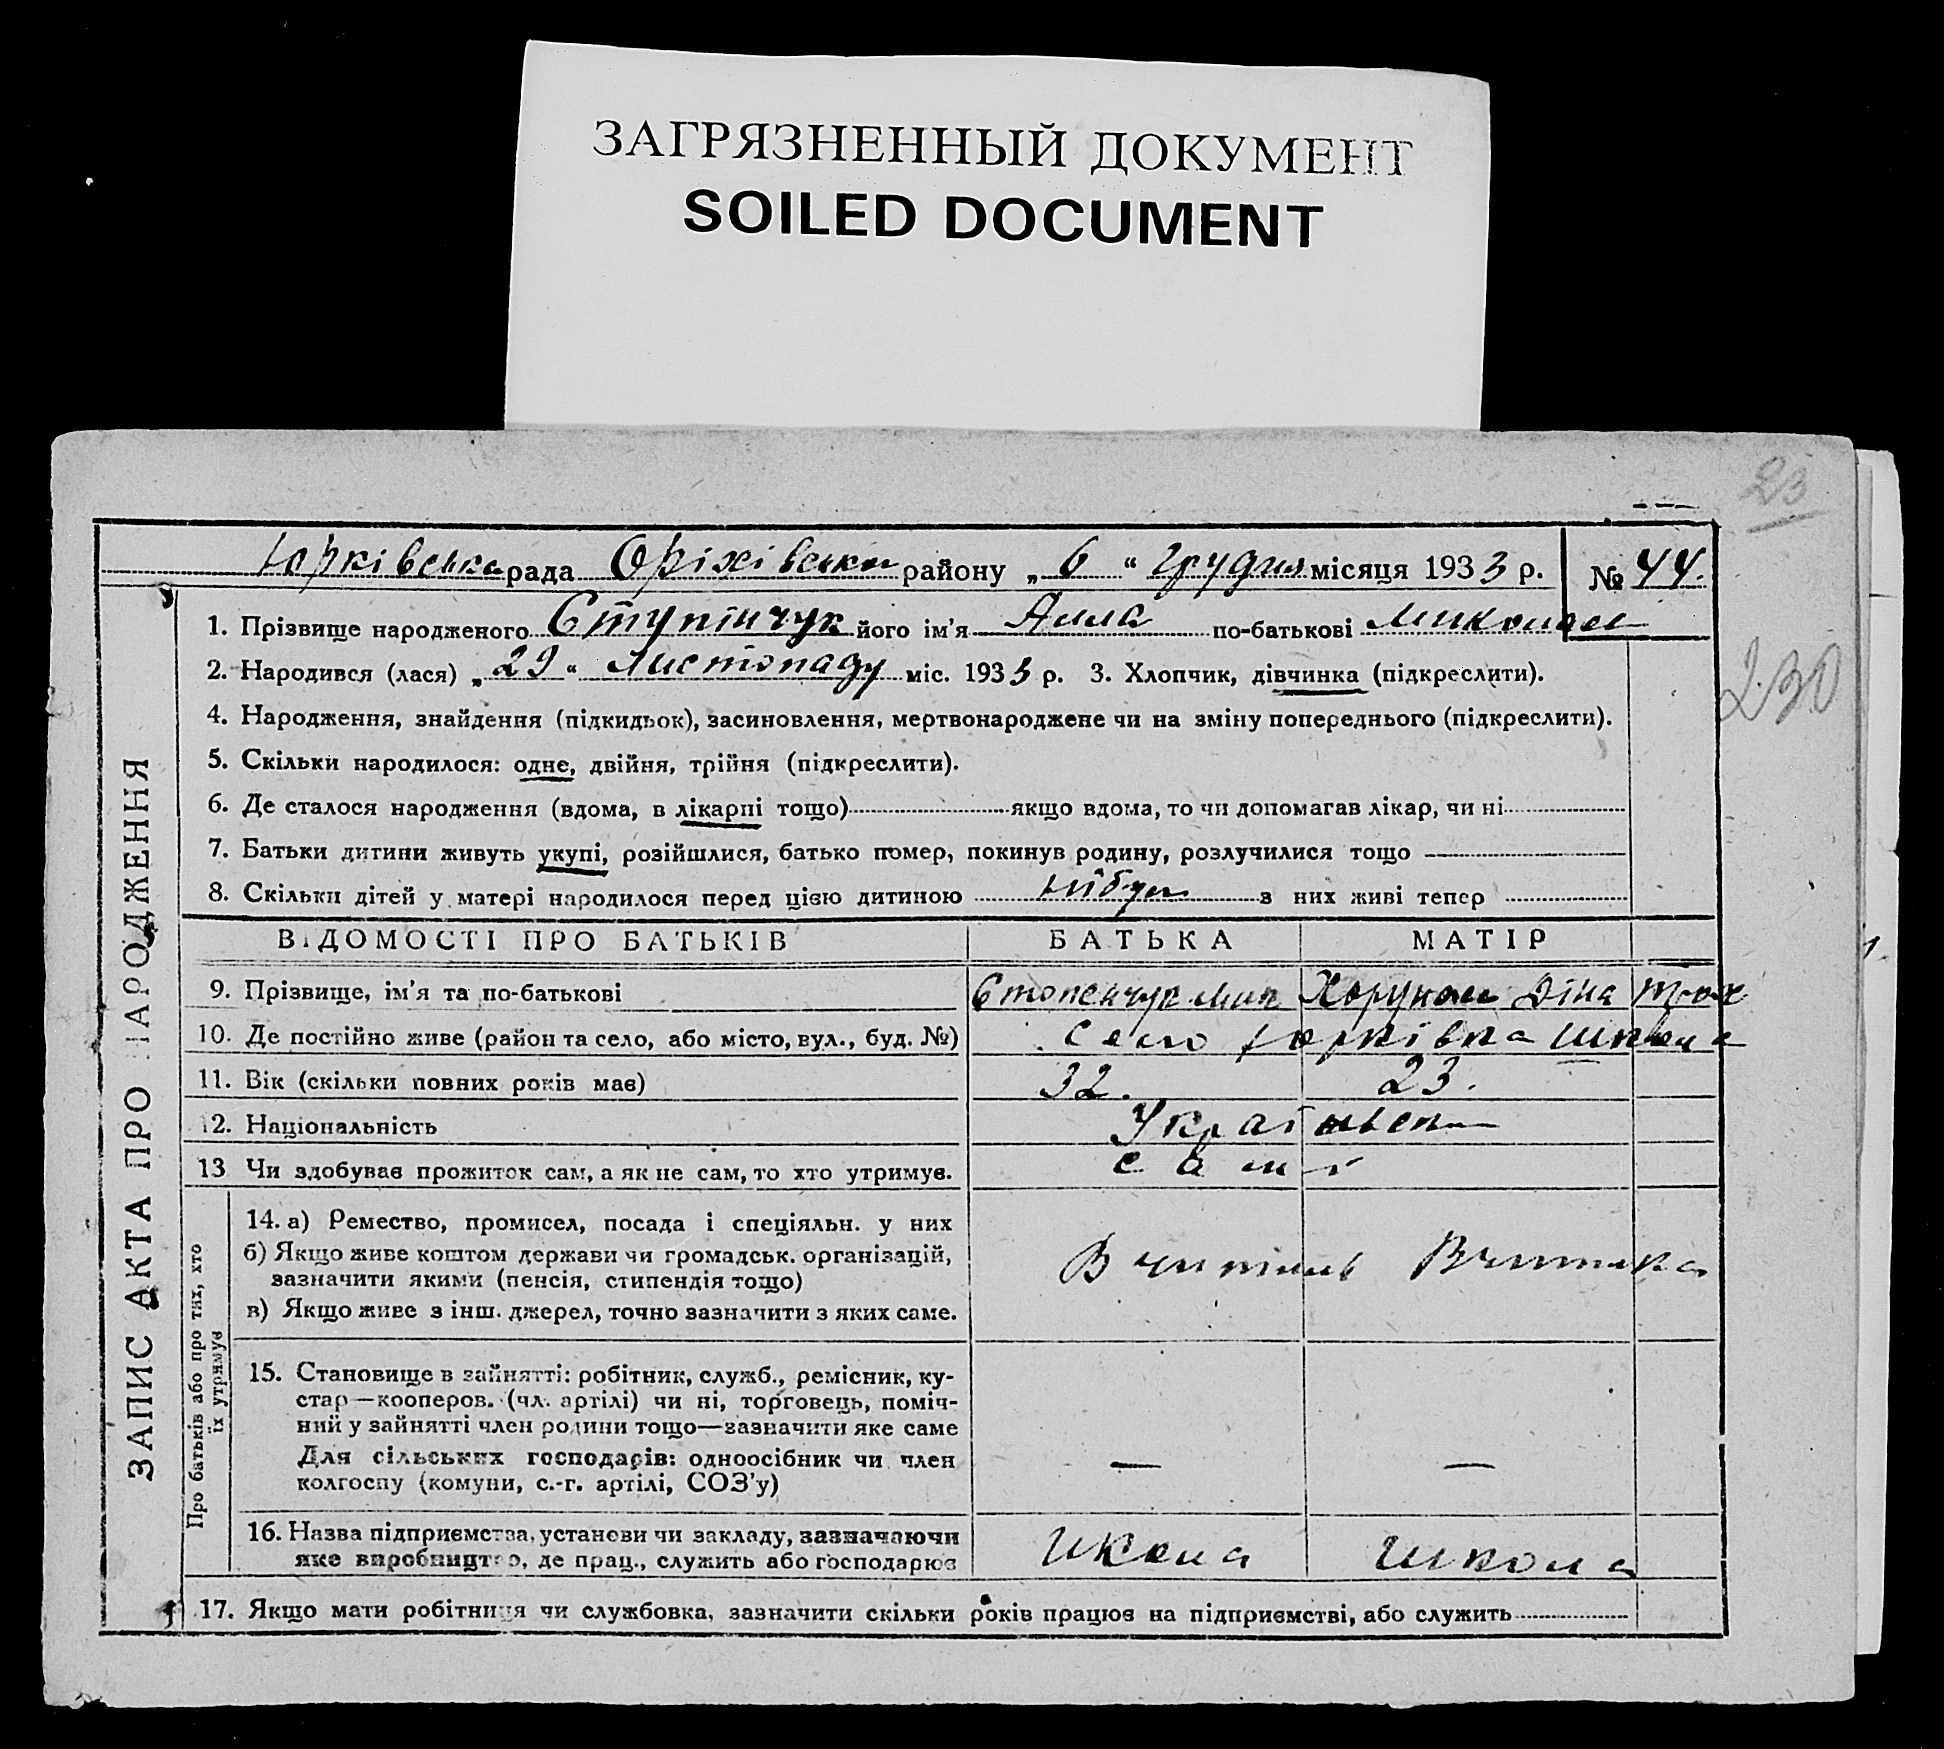 ЗАГРЯЗНЕННЫЙ ДОКУМЕНТ
SOILED DOCUMENT
23
Юрківська рада Оріхівськи району „6“ грудня місяця 1933 р. № 44.
230
ЗАПИС АКТА ПРО НАРОДЖЕННЯ
1. Прізвище народженого Ступінчук його ім’я Алла по-батькові Микол
2. Народився (лася) „29“ Листопаду міс. 1933 р. 3. Хлопчик, дівчинка (підкреслити).
4. Народження, знайдення (підкидьок), засиновлення, мертвонароджене чи на зміну попереднього (підкреслити).
5. Скільки народилося: одне, двійня, трійня (підкреслити).
6. Де сталося народження (вдома, в лікарні тощо) якщо вдома, то чи допомагав лікар, чи ні
7. Батьки дитини живуть укупі, розійшлися, батько помер, покинув родину, розлучилися тощо
8. Скільки дітей у матері народилося перед цією дитиною з них живі тепер
ВІДОМОСТІ ПРО БАТЬКІВ БАТЬКА МАТІР
9. Прізвище, ім’я та по-батькові Стопенчук Мик Діна
10. Де постійно живе (район та село, або місто, вул., буд. №) село Юрківка школа
11. Вік (скільки повних років має) 32. 23.
12. Національність Українськ
13 Чи здобуває прожиток сам, а як не сам, то хто утримує. самі
Про батьків або про тих, хто
їх утримує
14. а) Ремество, промисел, посада і спеціяльн. у них
б) Якщо живе коштом держави чи громадськ. організацій,
зазначити якими (пенсія, стипендія тощо) Вчитель Вчителка
в) Якщо живе з інш. джерел, точно зазначити з яких саме.
15. Становище в зайнятті: робітник, служб., ремісник, ку-
стар—кооперов. (чл. артілі) чи ні, торговець, поміч-
ний у зайнятті член родини тощо—зазначити яке саме
Для сільських господарів: одноосібник чи член — —
колгоспу (комуни, с.-г. артілі, СОЗ’у)
16. Назва підприємства, установи чи закладу, зазначаючи школа школа
яке виробництво, де прац., служить або господарює
17. Якщо мати робітниця чи службовка, зазначити скільки років працює на підприємстві, або служить